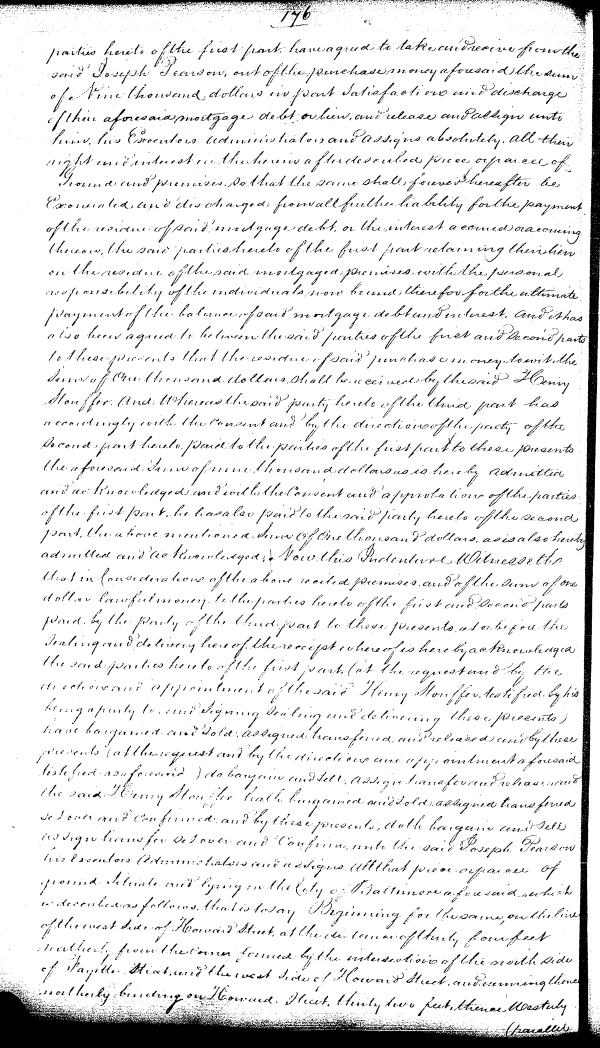 176
parties hereto of the first part, have agreed to take and receive from the
said Joseph Pearson, out of the purchase money aforesaid the sum
of Nine thousand dollars in part satisfaction and discharge
of their aforesaid mortgage debt or lien, and release and assign unto
him, his Executors Administrators and Assigns absolutely, all their
right and interest in the herein after described piece or parcel of
Ground and premises, so that the same shall forever hereafter be
Exonerated, and discharged from all further liability for the payment
of the residue of said mortgage debt, or the interest accrued or accruing
thereon, the said parties hereto of the first part retaining their lien
on the residue of the said mortgaged premises, with the personal
responsibility of the individuals now bound therefor for the ultimate
payment of the balance of said mortgage debt and interest. And it has
also been agreed to between the said parties of the first and second parts
to these presents that the residue of said purchase money, to wit, the
Sum of One thousand dollars, shall be received by the said Henry
Stouffer. And Whereas the said party hereto of the third part has
accordingly with the consent and by the direction of the party of the
second part hereto, paid to the parties of the first part to these presents
the aforesaid Sum of nine thousand dollars as is hereby admitted
and acknowledged, and with the Consent and approbation of the parties
of the first part, he has also paid to the said party hereto of the second
part, the above mentioned Sum of One thousand dollars, as is also hereby
admitted and acknowledged; Now this Indenture Witnesseth
that in Consideration of the above recited premises, and of the sum of one
dollar lawful money, to the parties hereto of the first and second parts
paid, by the party of the third part to these presents, at or before the
Sealing and delivery hereof, the receipt whereof is hereby acknowledged
the said parties hereto of the first part, (at the request and by the
direction and appointment of the said Henry Stouffer, testified by his
being a party to, and signing sealing and delivering these presents)
have bargained and sold, assigned transferred and released and by these
presents (at the request and by the direction and appointment aforesaid
testified as aforesaid) do bargain and sell, assign transfer and release and
the said Henry Stouffer hath bargained and sold, assigned transferred
set over and Confirmed, and by these presents, doth bargain and sell
assign transfer set over and Confirm, unto the said Joseph Pearson
his Executors Administrators and assigns. All that piece or parcel of
ground, Situate and lying in the City of Baltimore aforesaid, which
is described as follows, that is to say Beginning for the same, on the line
of the west side of Howard Street, at the distance of thirty four feet
northerly from the corner formed by the intersection of the north side
of Fayette Street, and the west side of Howard Street, and running thence
northerly binding on Howard Street, thirty two feet, thence Westerly
(parallel